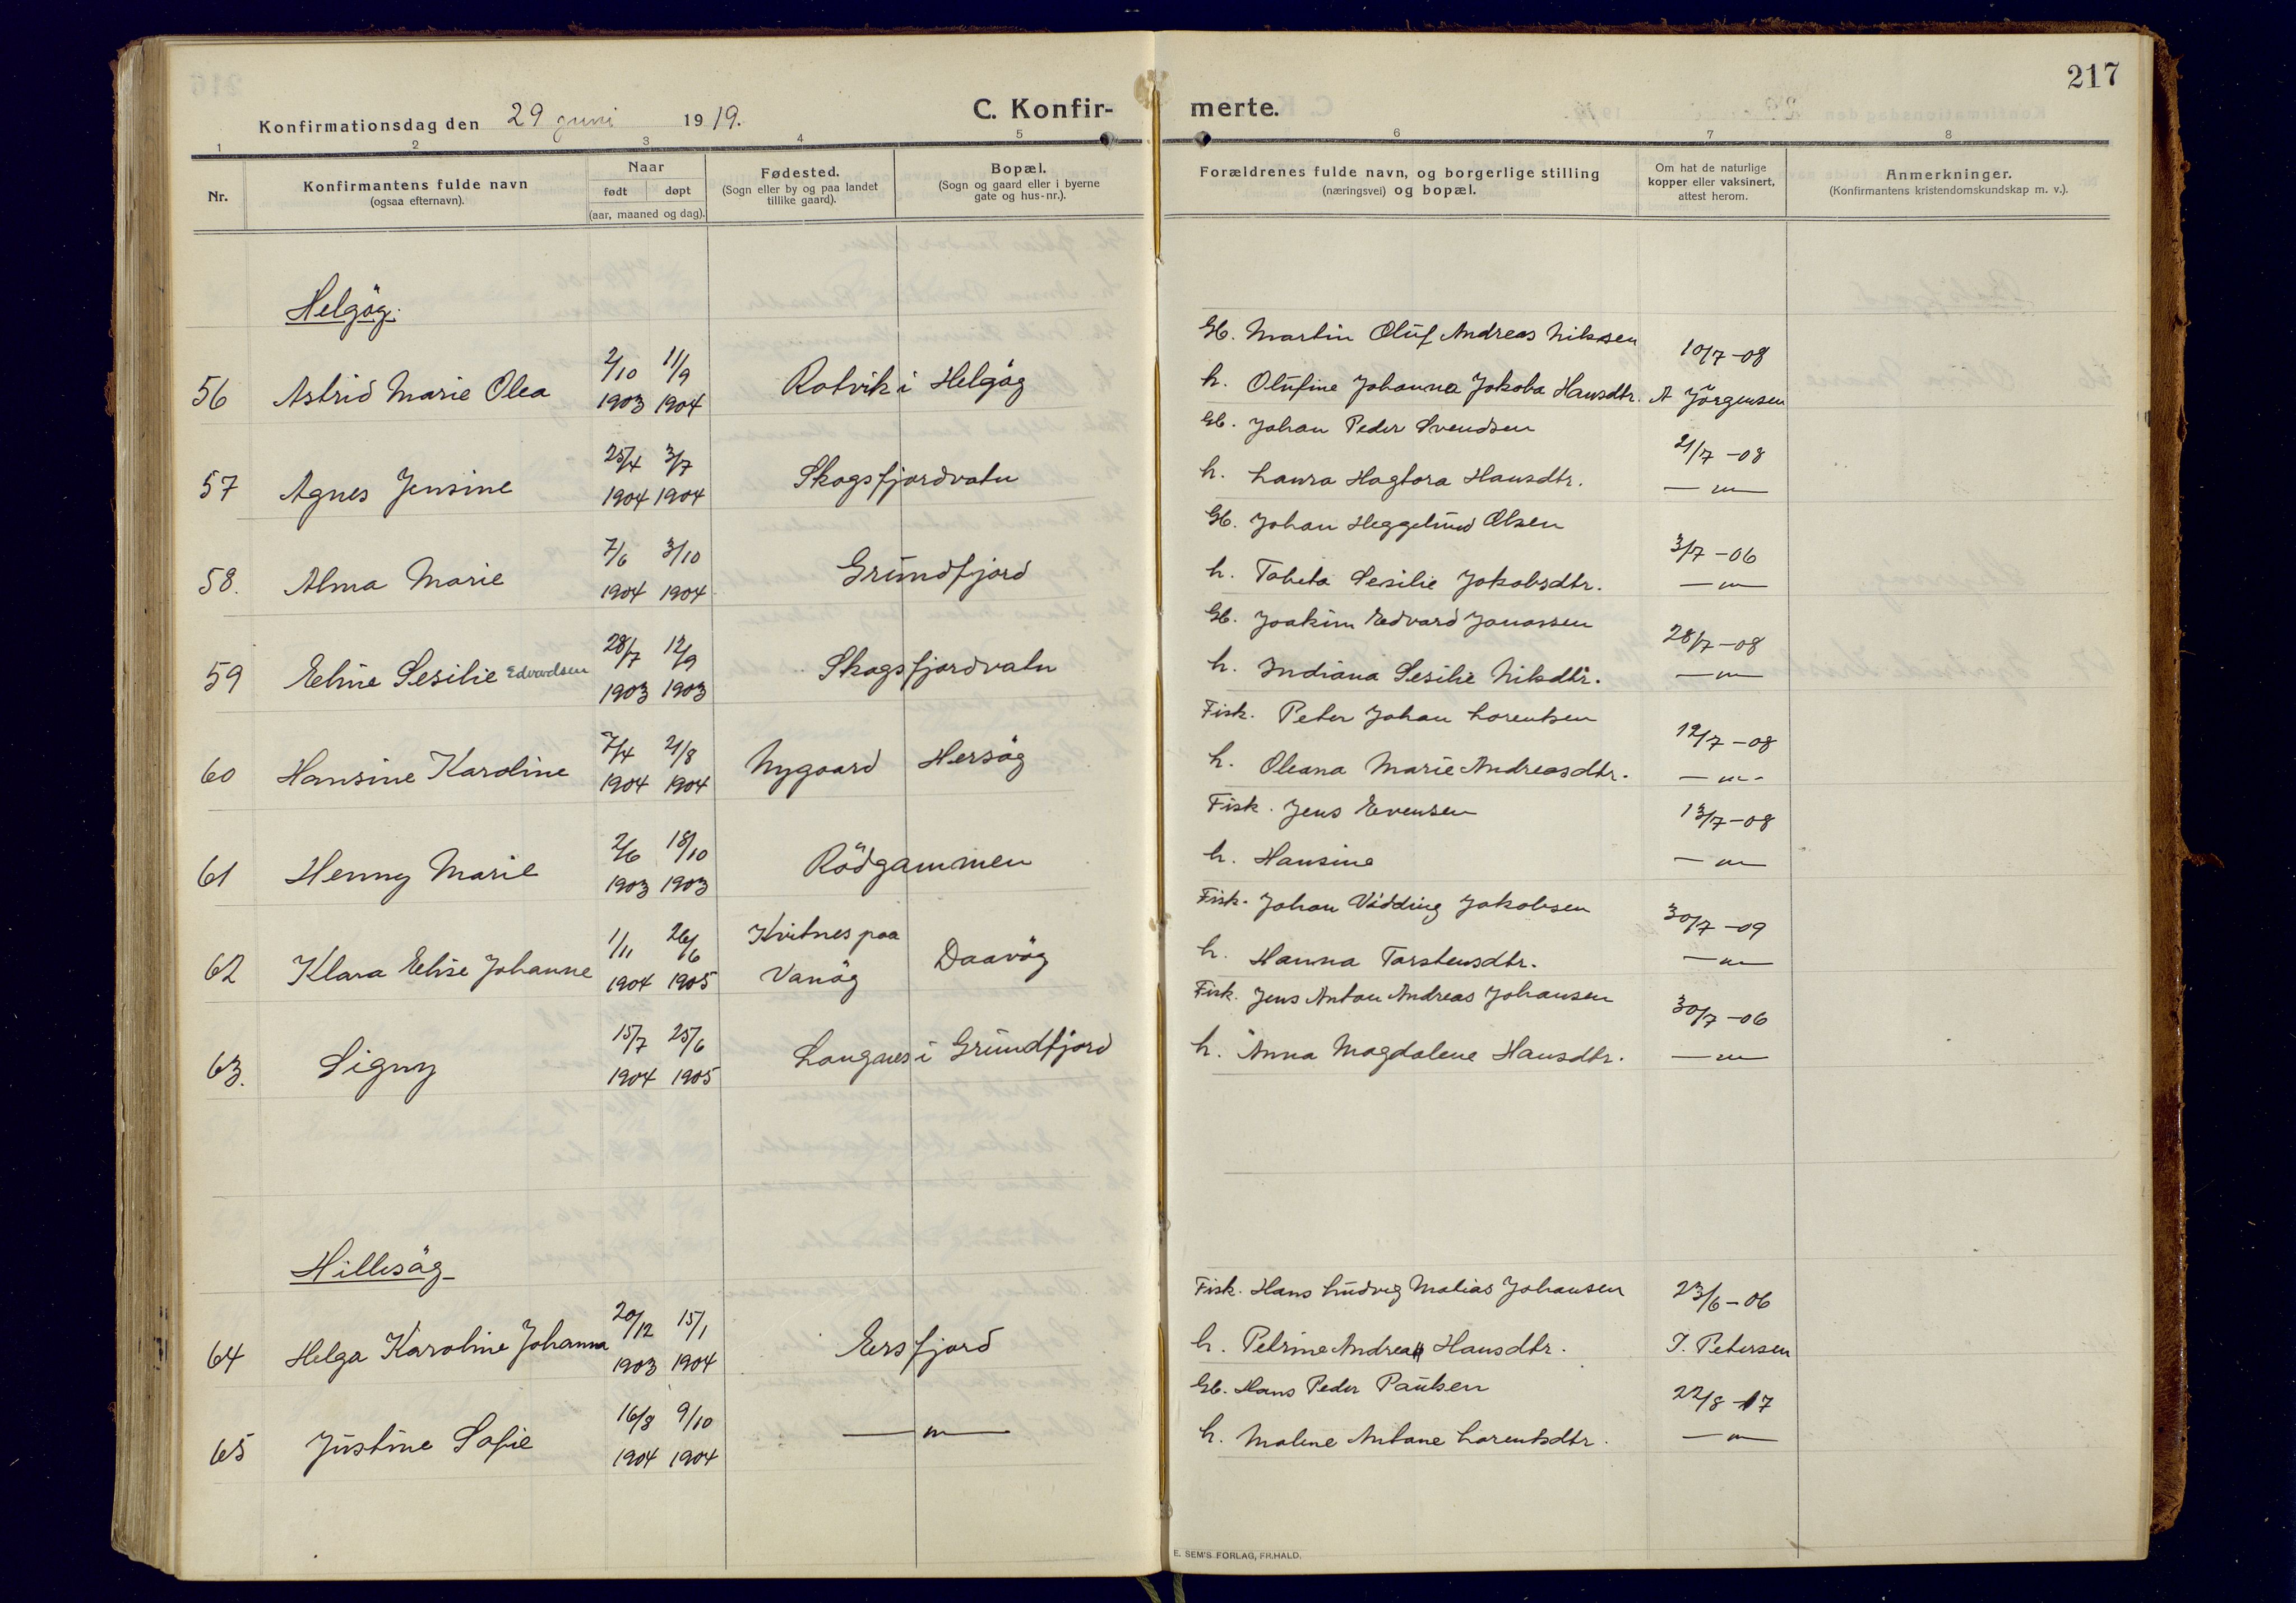 217
Konfirmationsdag den 29 juni 1919.
C. Konfir-
merte.
1 2 3 4 5 6 7 8
Nr.
Konfirmantens fulde navn
(ogsaa efternavn).
Naar
født døpt
(aar, maaned og dag).
Fødested.
(Sogn eller by og paa landet
tillike gaard).
Bopæl.
(Sogn og gaard eller i byerne
gate og hus-nr.).
Forældrenes fulde navn, og borgerlige stilling
(næringsvei) og bopæl.
Om hat de naturlige
kopper eller vaksinert,
attest herom.
Anmerkninger.
(Konfirmantens kristendomskundskap m. v.).
Helgöy.
Gb. Martin Oluf Andreas Nilssen 10/7-08
56 Astrid Marie Olea 2/10 1903 11/9 1904 Rotvik i Helgöy h. Olufine Johanna Jakoba Hansdtr. A Jörgensen
Gb. Johan Peder Svendsen 21/7-08
57 Agnes Jensine 25/4 1904 3/7 1904 Skogsfjordvatn h. Laura Hagtora Hansdtr. — " —
Gb. Johan Heggelund Olsen 3/7-06
58. Alma Marie 7/6 1904 3/10 1904 Grundfjord h. Tabeta Sesilie Jakobsdtr. — " —
Gb. Joakim Edvard Jonassen 28/7-08
59 Eline Sesilie Edvardsen 28/7 1903 12/9 1903 Skogsfjordvatn h. Indiana Sesilie Nilsdtr. — " —
Fisk. Peter Johan Lorentsen 12/7-08
60 Hansine Karoline 7/4 1904 21/8 1904 Nygaard Hersöy h. Oleana Marie Andreasdtr. — " —
Fisk. Jens Evensen 13/7-08
61 Henny Marie 2/6 1903 18/10 1903 Rödgammen h. Hansine — " —
Fisk. Johan Vidding Jakobsen 30/7-09
62 Klara Elise Johanne 1/11 1904 26/6 1905 Kvitnes paa Vanöy Daavöy h. Hanna Torstensdtr. — " —
Fisk. Jens Anton Andreas Johansen 30/7-06
63. Signy 15/7 1904 25/6 1905 Langnes i Grundfjord h. Anna Magdalene Hansdtr. — " —
Hillesöy
Fisk. Hans Ludvig Matias Johansen 23/6-06
64 Helga Karoline Johanna 20/12 1903 15/1 1904 Ersfjord h. Petrine Andrea Hansdtr. J. Petersen
Gb. Hans Peder Paulsen 22/8-17
65 Justine Sofie 16/8 1904 9/10 1904 — " — h. Malene Antane Lorentsdtr. — " —
E. SEM'S FORLAG, FR.HALD.